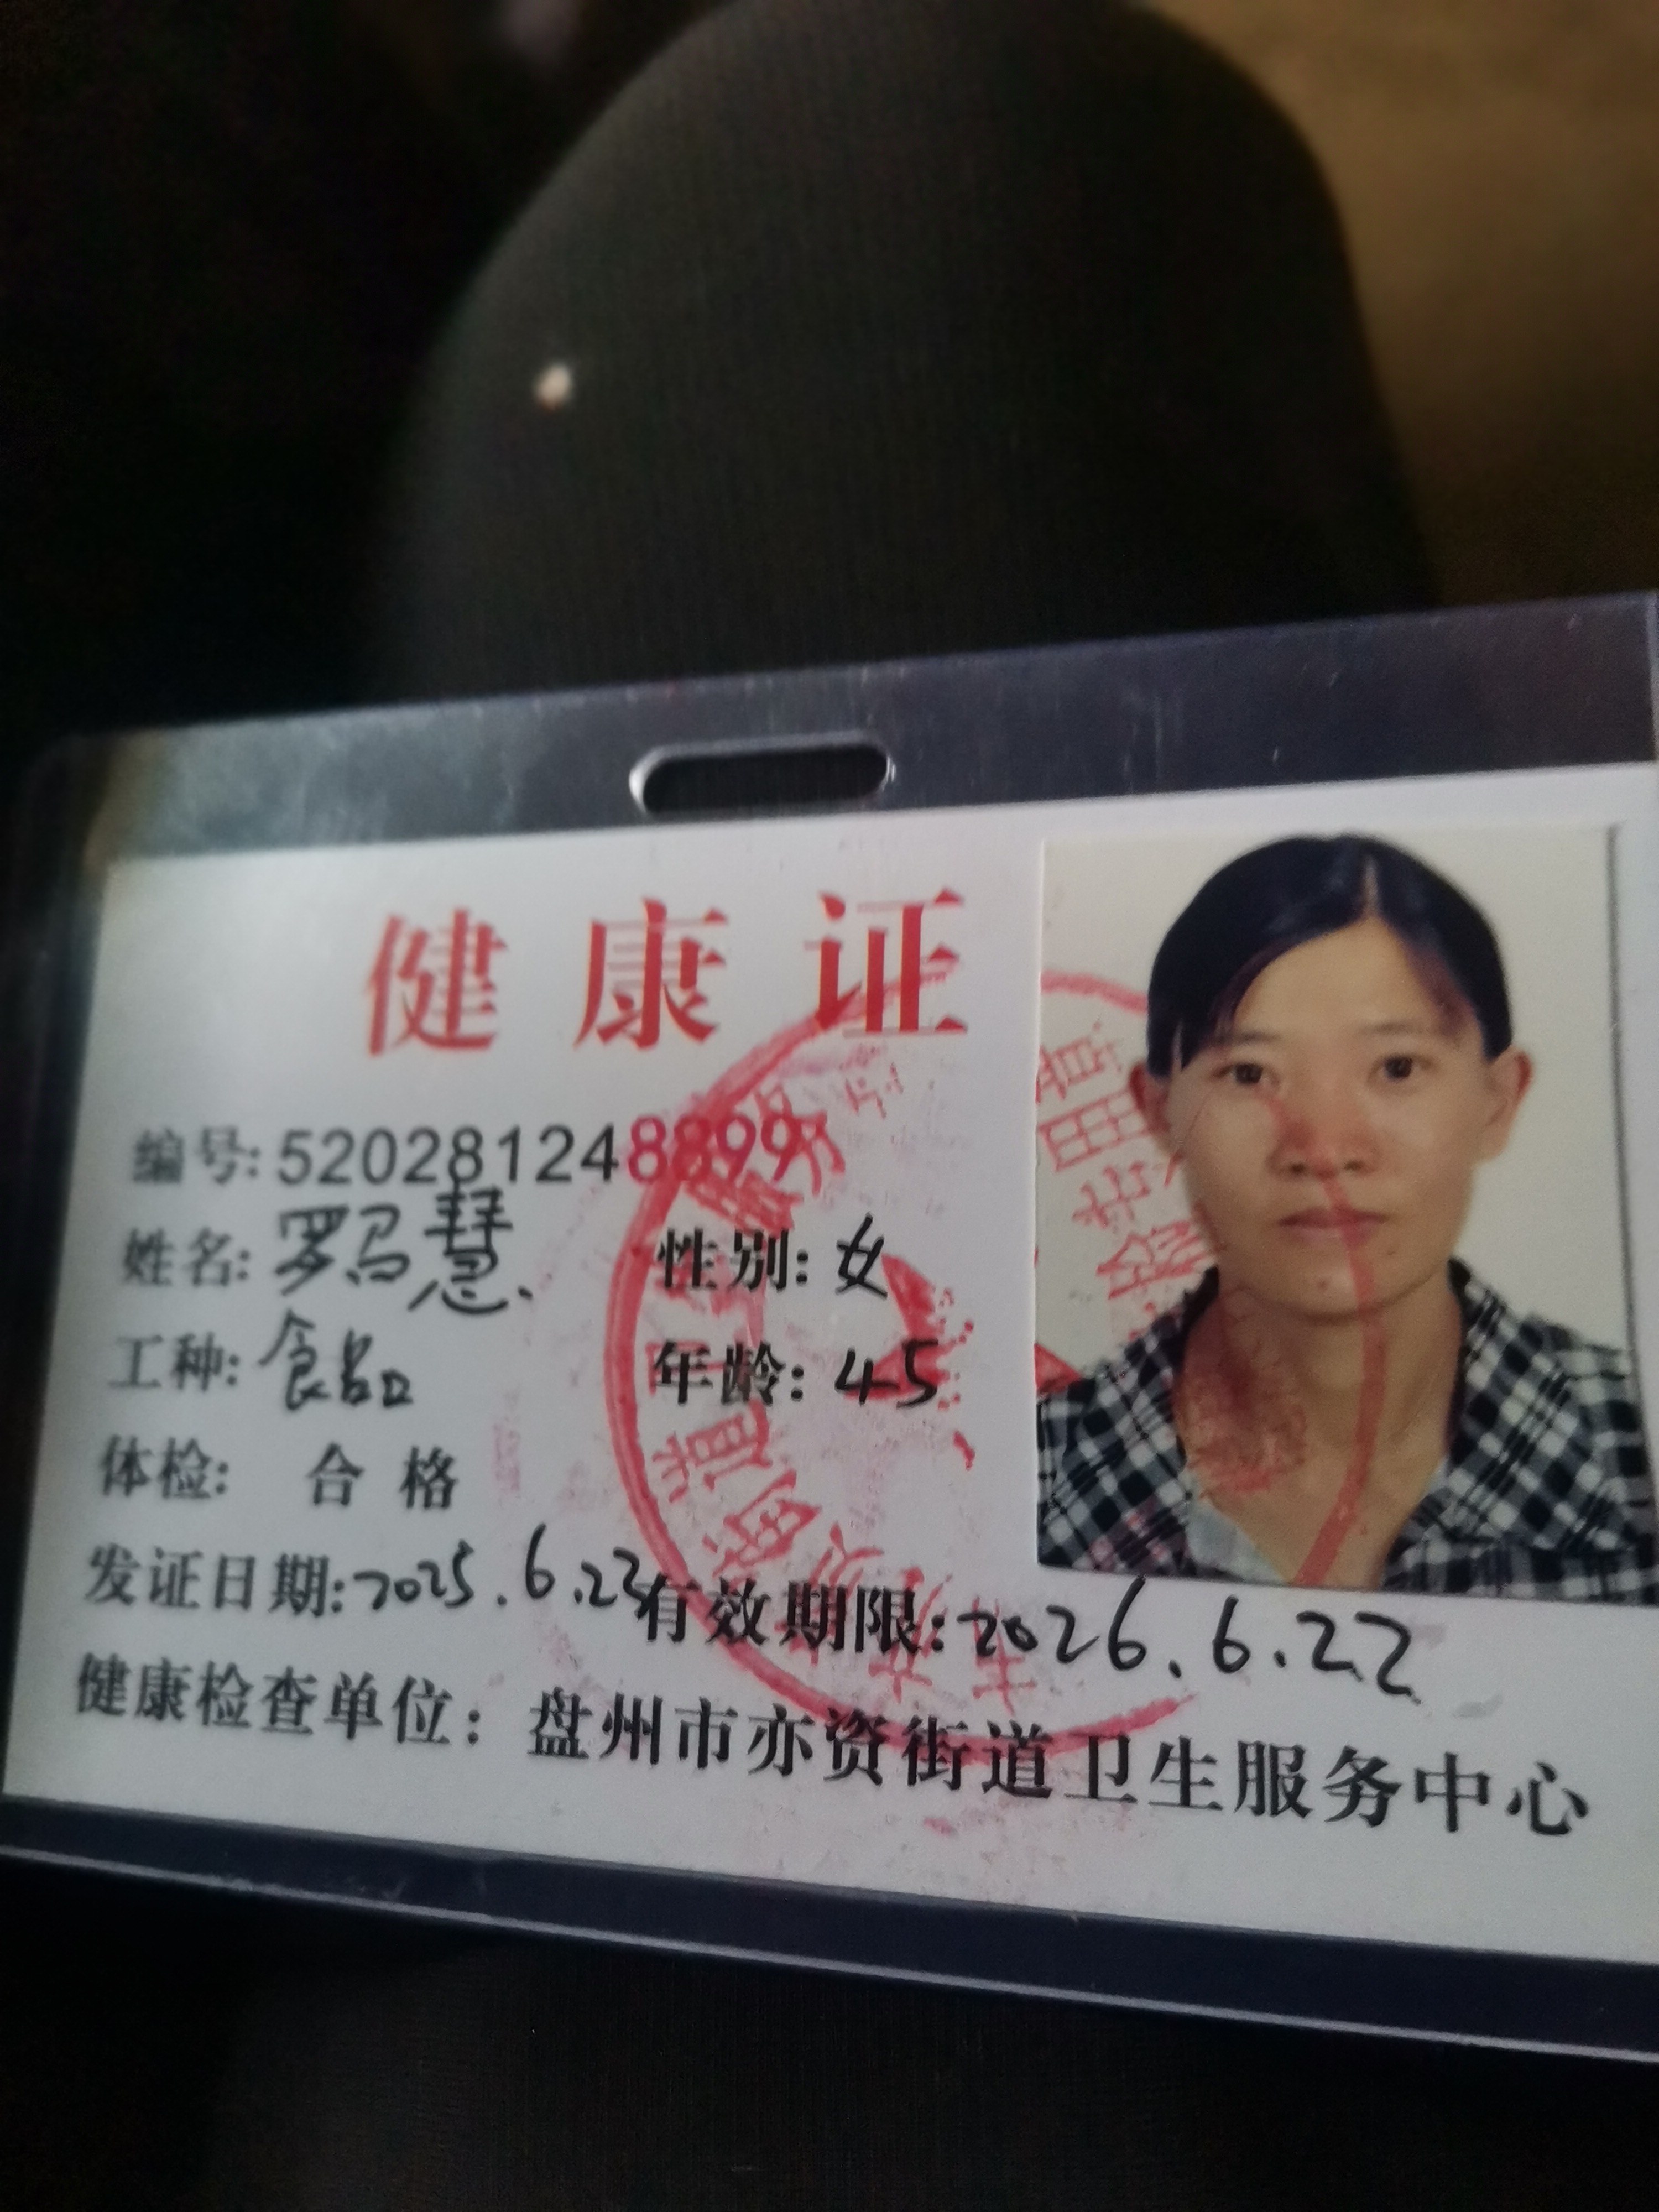 健康证
编号: 520281248899
姓名: 罗马慧 性别: 女
工种: 食品 年龄: 45
体检: 合格
发证日期: 2025.6.23 有效期限: 2026.6.22
健康检查单位: 盘州市亦资街道卫生服务中心